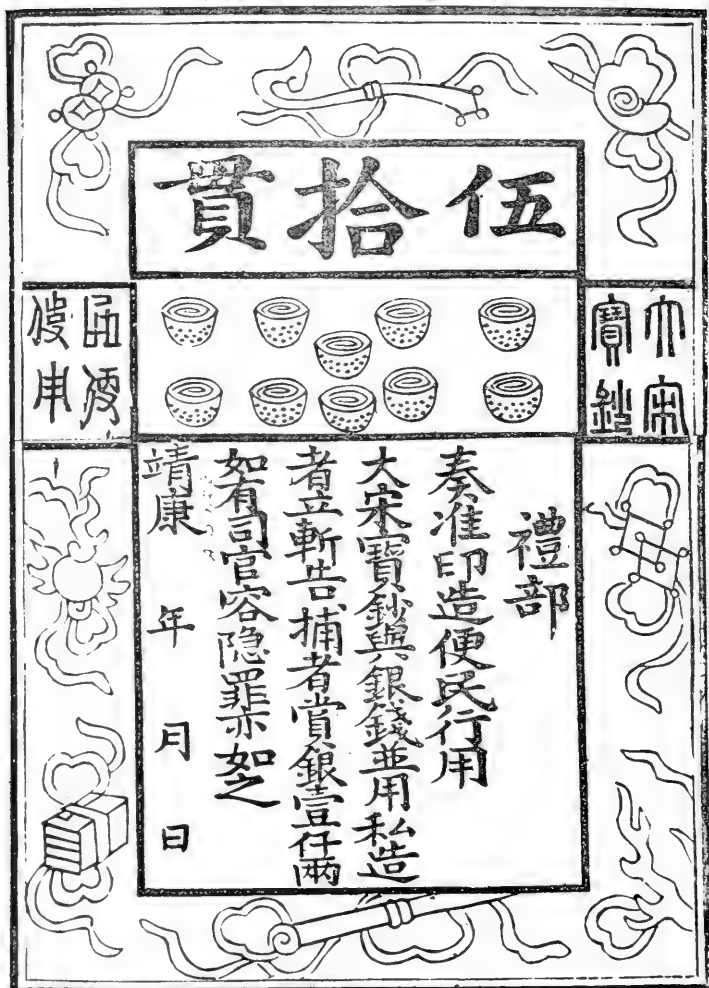 伍拾貫
大宋
寶鈔
禮部
奏准印造便民行用
大宋寶鈔與銀錢並用私造
者立斬告捕者賞銀壹仟兩
如有司官容隐罪亦如之
靖康 年 月 日